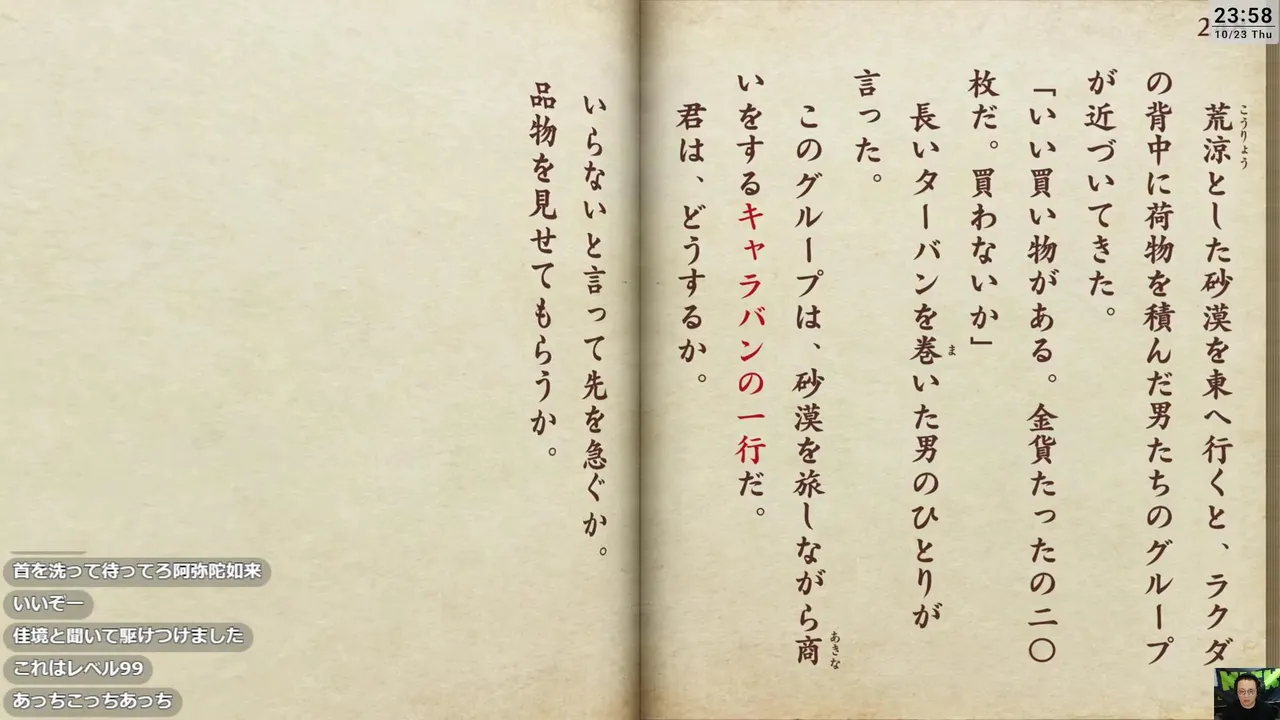 荒涼とした砂漠を東へ行くと、ラクダ
の背中に荷物を積んだ男たちのグループ
が近づいてきた。
「いい買い物がある。金貨たったの二〇
枚だ。買わないか」
長いターバンを巻いた男のひとりが
言った。
このグループは、砂漠を旅しながら商
いをするキャラバンの一行だ。
君は、どうするか。
いらないと言って先を急ぐか。
品物を見せてもらうか。
こうりょう
ま
あきな
2
23:58
10/23 Thu
首を洗って待ってろ阿弥陀如来
いいぞー
佳境と聞いて駆けつけました
これはレベル99
あっちこっちあっち